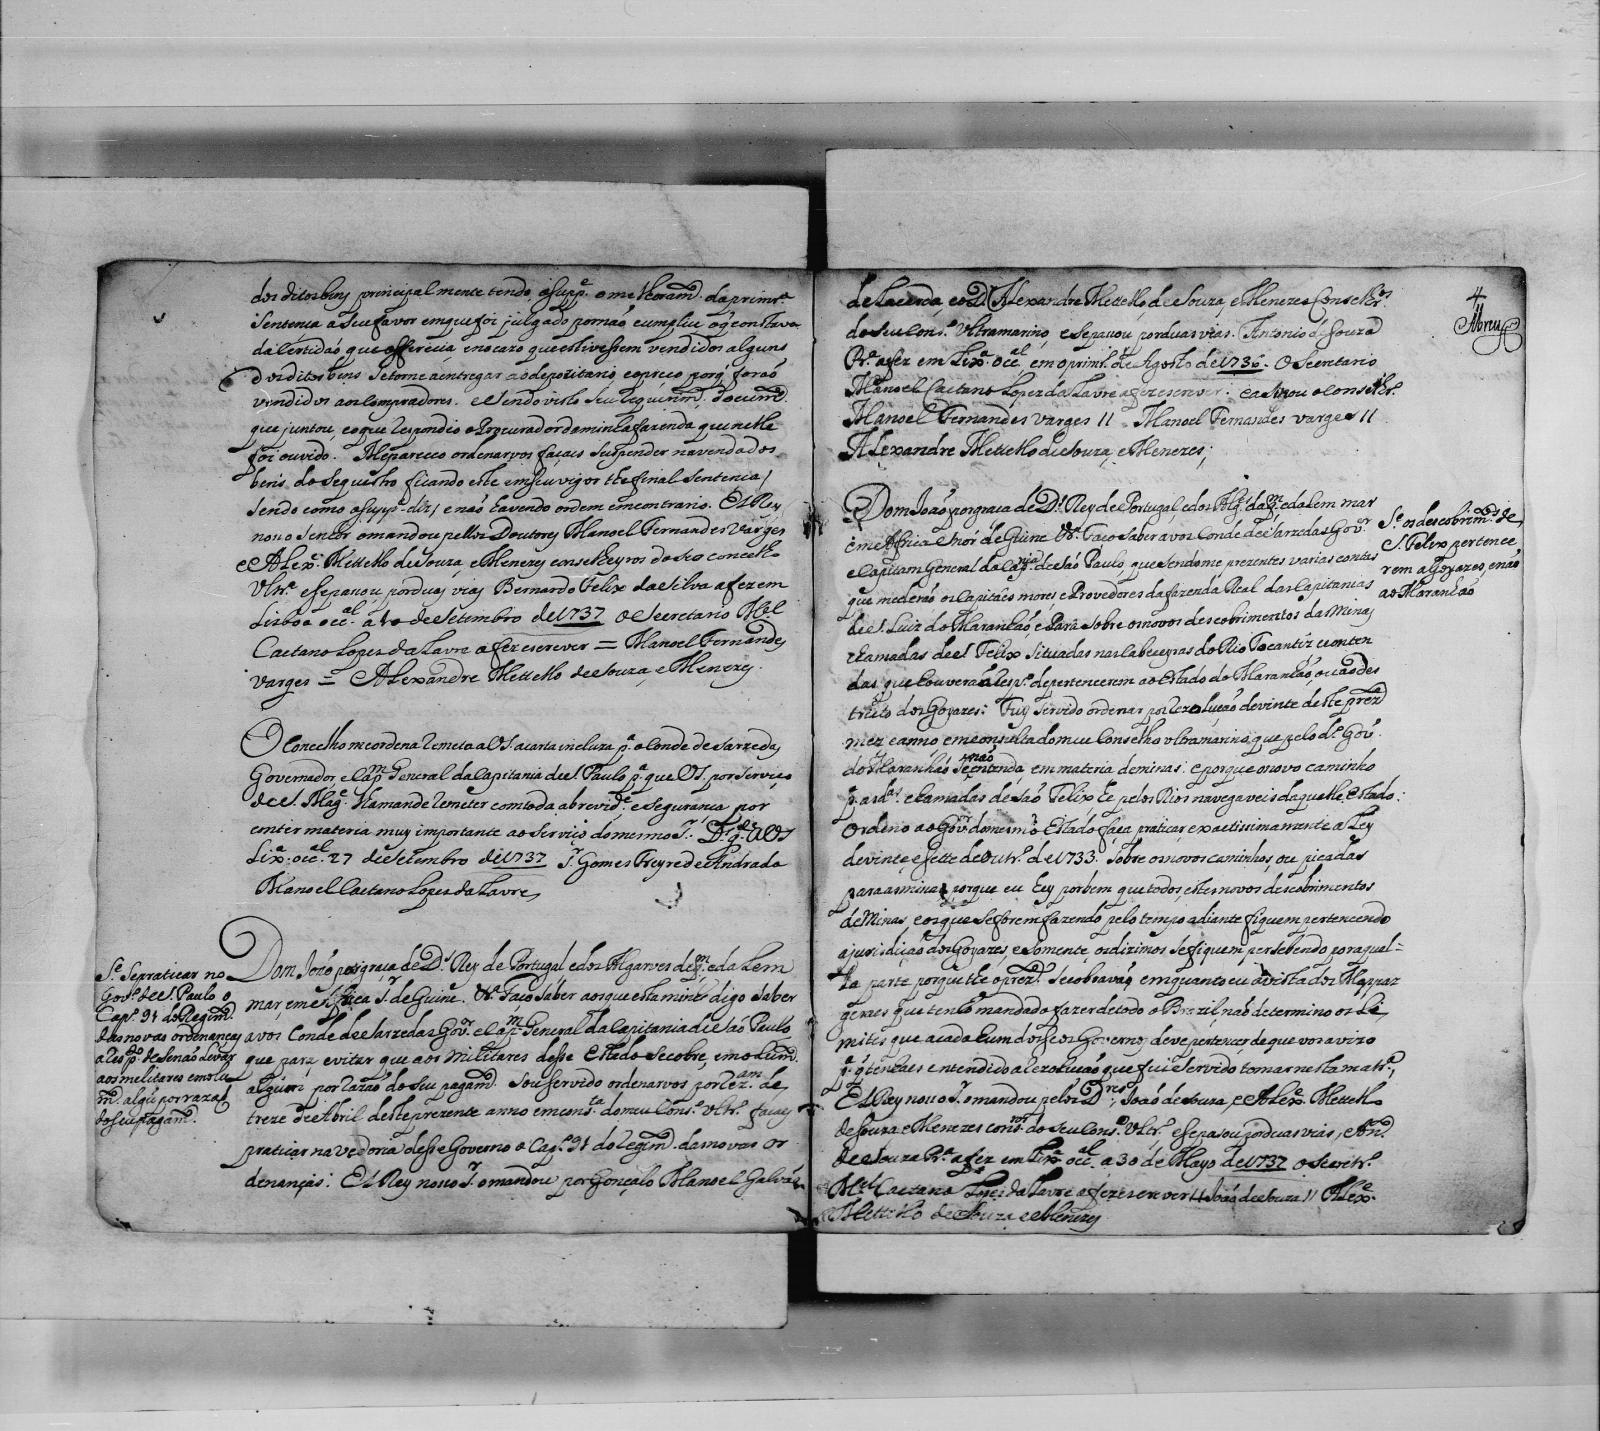 dos ditos bens principalmente tendo a supp.e o melhoram.to da primr.a
Sentença a seu favor em que foi julgado por não cumpliu o q̃ constava
da Certidão que offerecia, e no cazo que estivessem vendidos alguns
dos ditos bens se torne a entregar ao depozitario o preço porq̃ forão
vendidos aos Compradores. e sendo visto seu requirim.to docum.to
que juntou, e o que respondeo o Procurador da minha fazenda que nelle
foi ouvido. Mepareceo ordenarvos façais suspender na venda dos
bens do sequestro ficando este em seu vigor the final Sentença,
sendo como a supp.e diz, e não havendo ordem em contrario. El Rey
nosso Senhor o mandou pellos Doutores Manoel Fernandes Varges
e Alex.e Mettello de Souza, e Menezes conselheyros do seo concelho
Ultr.o e se passou por duas vias Bernardo Felix da Silva a fez em
Lisboa occ.al a 10 de Setembro de 1737 o Secretario M.el
Caetano Lopes da Lavre a fez escrever = Manoel Fernandes
Varges = Alexandre Mettello de Souza, e Menezes.
O Concelho me ordena remeta a VS. a carta incluza p.a o Conde de Sarzedas
Governador e Cap.m General da Capitania de S. Paulo p.a que VS. por serviço
de S. Mag.e lha mande remeter com toda a brevid.e e segurança por
conter materia muy importante ao serviço do mesmo S.r D.s g.de a VS
Lix.a occ.al 27 de Setembro de 1737 S.r Gomes Freyre de Andrada
Manoel Caetano Lopes da Lavre
S.e Se praticar no
Gov.o de S. Paulo o
Cap.o 91 do Regim.to
das novas ordenanças
a resp.to de se não levar
aos melitares emolu
m.to algũ por razaõ
do seu pagam.to
Dom João por graça de D.s Rey de Portugal e dos Algarves daq.m e dalem
mar, em Africa S.r de Guine. &.a Faço saber aos que esta minh digo saber
a vos Conde de Sarzedas Gov.or e Cap.m General da Capitania de São Paulo
que para evitar que aos militares desse Estado se cobre, emolum.to
algum por razão do seu pagam.to Sou servido ordenarvos por rez.am de
treze de Abril deste prezente anno em cons.ta do meu Cons.o Ultr.o façaes
praticar na vedoria desse Governo o Cap.o 91 do regim.to das novas or
denanças: El Rey nosso S.r o mandou por Gonçalo Manoel Galvão
4
Abreu
de Lacerda, e o D.r Alexandre Mettello de Souza, e Menezes Conselhr.os
do seu Cons.o Ultramarino, e se passou por duas vias. Antonio de Souza
Pr.a a fez em Lix.a occ.al em o primr.o de Agosto de 1736. O Secretario
Manoel Caetano Lopes da Lavre a fez escrever. e asinou o Conselhr.o
Manoel Fernandes Varges // Manoel Fernandes Varges //
Alexandre Mettello de Souza, e Menezes;
Dom João por graça de D.s Rey de Portugal, e dos Alg.es daq.m, e dalem mar
em Africa Snor de Guine &.a Faço saber a vos Conde de Sarzedas Gov.or
e Capitam General da Cap.nia de São Paulo, que sendome prezentes varias contas
que me derão os Capitães mores, e Provedores da fazenda Real das Capitanias
de S. Luiz do Maranhão, e Pará sobre os novos descobrimentos das Minas
chamadas de S. Felix situadas nas Cabeceyras do Rio Tocantiz e conten
das que houverão a resp.o de pertencerem ao Estado do Maranhão, ou ao des
tricto dos Goyazes: Fuy servido ordenar por rezolução de vinte deste prez.te
mez e anno em consulta do meu Conselho ultramarino, que pelo d.o Gov.o
do Maranhão se não entenda em materia de minas: e porque o novo caminho
p.a as d.as chamadas de São Felix he pelos Rios navegaveis daquelle Estado:
Ordeno ao Gov.or do mesmo Estado faça praticar exactissimamente a Ley
de vinte e sette de Outr.o de 1733. sobre os novos caminhos, ou picadas
para as minas, porque eu hey por bem que todos estes novos descobrimentos
de Minas, e os que se forem fazendo pelo tempo adiante fiquem pertencendo
a jurisdição dos Goyazes, e somente os dizimos se fiquem persebendo por aquel=
la parte porque the o prez.te se cobravão em quanto eu á vista dos Mappas
geraes que tenho mandado fazer de todo o Brazil, não determino os Li
mites que a cada hum dos seos Governos deve pertencer de que vos avizo
p.a q̃ tenhaes entendido a rezolução que fui servido tomar nesta matr.a,
El Rey nosso S.r o mandou pelos D.res João de Souza, e Alex.e Mettello
de Souza e Menezes cons.ros do seu Cons.o Ultr.o e se passou por duas vias, An.to
de Souza Pr.a a fez em Lix.a occ.al a 30 de Mayo de 1737 o Secretr.o
M.el Caetano Lopes da Lavre a fez escrever // João de Souza // Alex.e
Mettello de Souza e Menezes
S.e os descobrim.tos de
S. Felix pertence
rem a Goyazes, e não
ao Maranhão